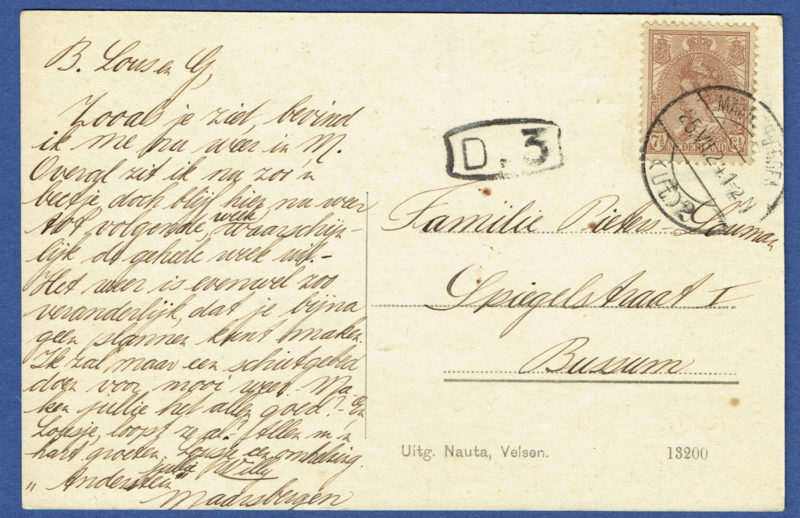 B. Lous en G,
Zooals je ziet, bevind
ik me nu weer in M.
Overal zit ik nu zoo'n
beetje, doch blijf hier nu weer
tot volgende week, waarschijn-
lijk de geheele week uit.-
Het weer is evenwel zoo
veranderlijk, dat je bijna
geen plannen kunt maken.
Ik zal maar een schietgebed
doen voor mooi weer. Ma-
ken jullie het allen goed? - En
Lousje, loopt ze al? Allen m'n
hart. groeten, Lousje een omhelzing.
jullie
„Anderstein"
Maarsbergen
D. 3
7½ NEDERLAND 7½
Familie Piekes-Douman
Spiegelstraat I
Bussum
Uitg. Nauta, Velsen.
13200